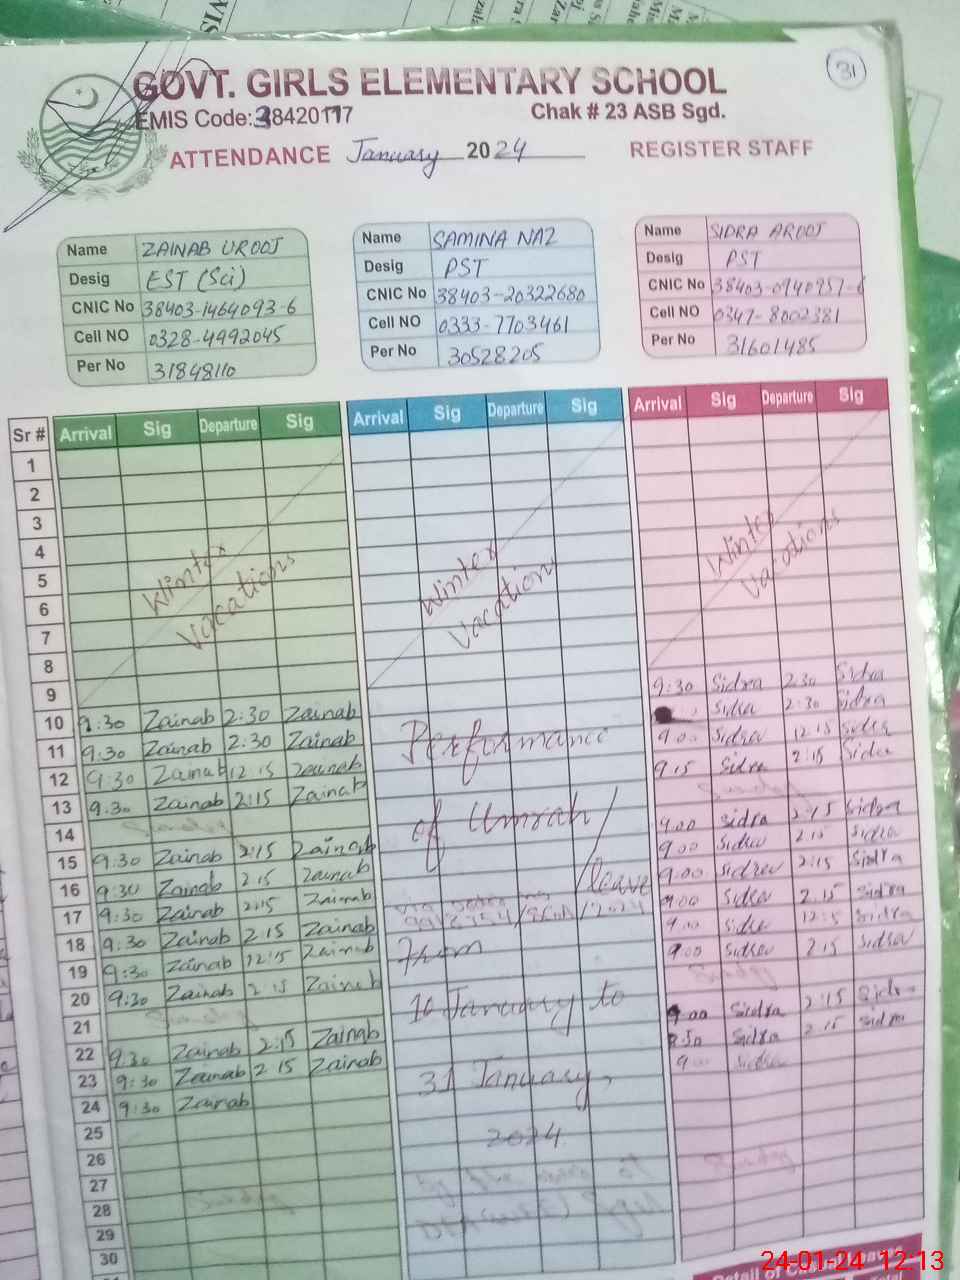 31
GOVT. GIRLS ELEMENTARY SCHOOL
EMIS Code:38420177
Chak # 23 ASB Sgd.
ATTENDANCE January 2024 REGISTER STAFF
Name ZAINAB UROOJ
Desig EST (Sci)
CNIC No 38403-1464093-6
Cell NO 0328-4992045
Per No 31848110
Name SAMINA NAZ
Desig PST
CNIC No 38403-20322680
Cell NO 0333-7703461
Per No 30528205
Name SIDRA AROOJ
Desig PST
CNIC No 38403-0940957-6
Cell NO 0347-8002381
Per No 31601485
Sr # Arrival Sig Departure Sig Arrival Sig Departure Sig Arrival Sig Departure Sig
1
2
3
4
5
6
7
8
9
Winter Vacations
Winter Vacations
Winter Vacations
10 9:30 Zainab 2:30 Zainab 9:30 Sidra 2:30 Sidra
11 9:30 Zainab 2:30 Zainab Sidra 2:30 Sidra
12 9:30 Zainab 12:15 Zainab 9:00 Sidra 12:15 Sidra
13 9:30 Zainab 2:15 Zainab 9:15 Sidra 2:15 Sidra
14
15 9:30 Zainab 2:15 Zainab 9:00 Sidra 2:15 Sidra
16 9:30 Zainab 2:15 Zainab 9:00 Sidra 2:15 Sidra
17 9:30 Zainab 2:15 Zainab 9:00 Sidra 2:15 Sidra
18 9:30 Zainab 2:15 Zainab 9:00 Sidra 2:15 Sidra
19 9:30 Zainab 12:15 Zainab 9:00 Sidra 12:15 Sidra
20 9:30 Zainab 2:15 Zainab 9:00 Sidra 2:15 Sidra
21
22 9:30 Zainab 2:15 Zainab 9:00 Sidra 2:15 Sidra
23 9:30 Zainab 2:15 Zainab 8:50 Sidra 2:15 Sidra
24 9:30 Zainab 9:00 Sidra
25
26
27
28
29
30
Performance
of Umrah/
leave
From
16 January to
31 January,
2024
24-01-24 12:13